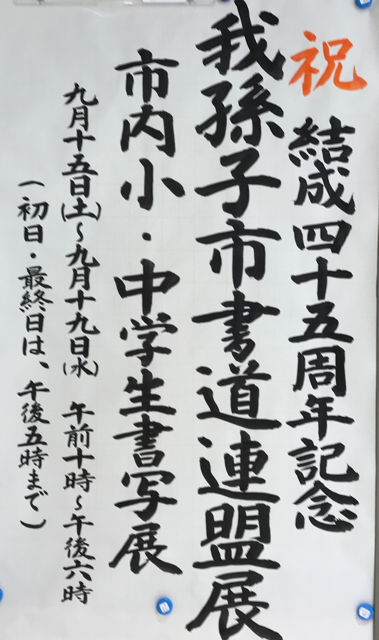 祝 結成四十五周年記念
我孫子市書道連盟展
市内小・中学生書写展
九月十五日(土)~九月十九日(水) 午前十時~午後六時
(初日・最終日は、午後五時まで)